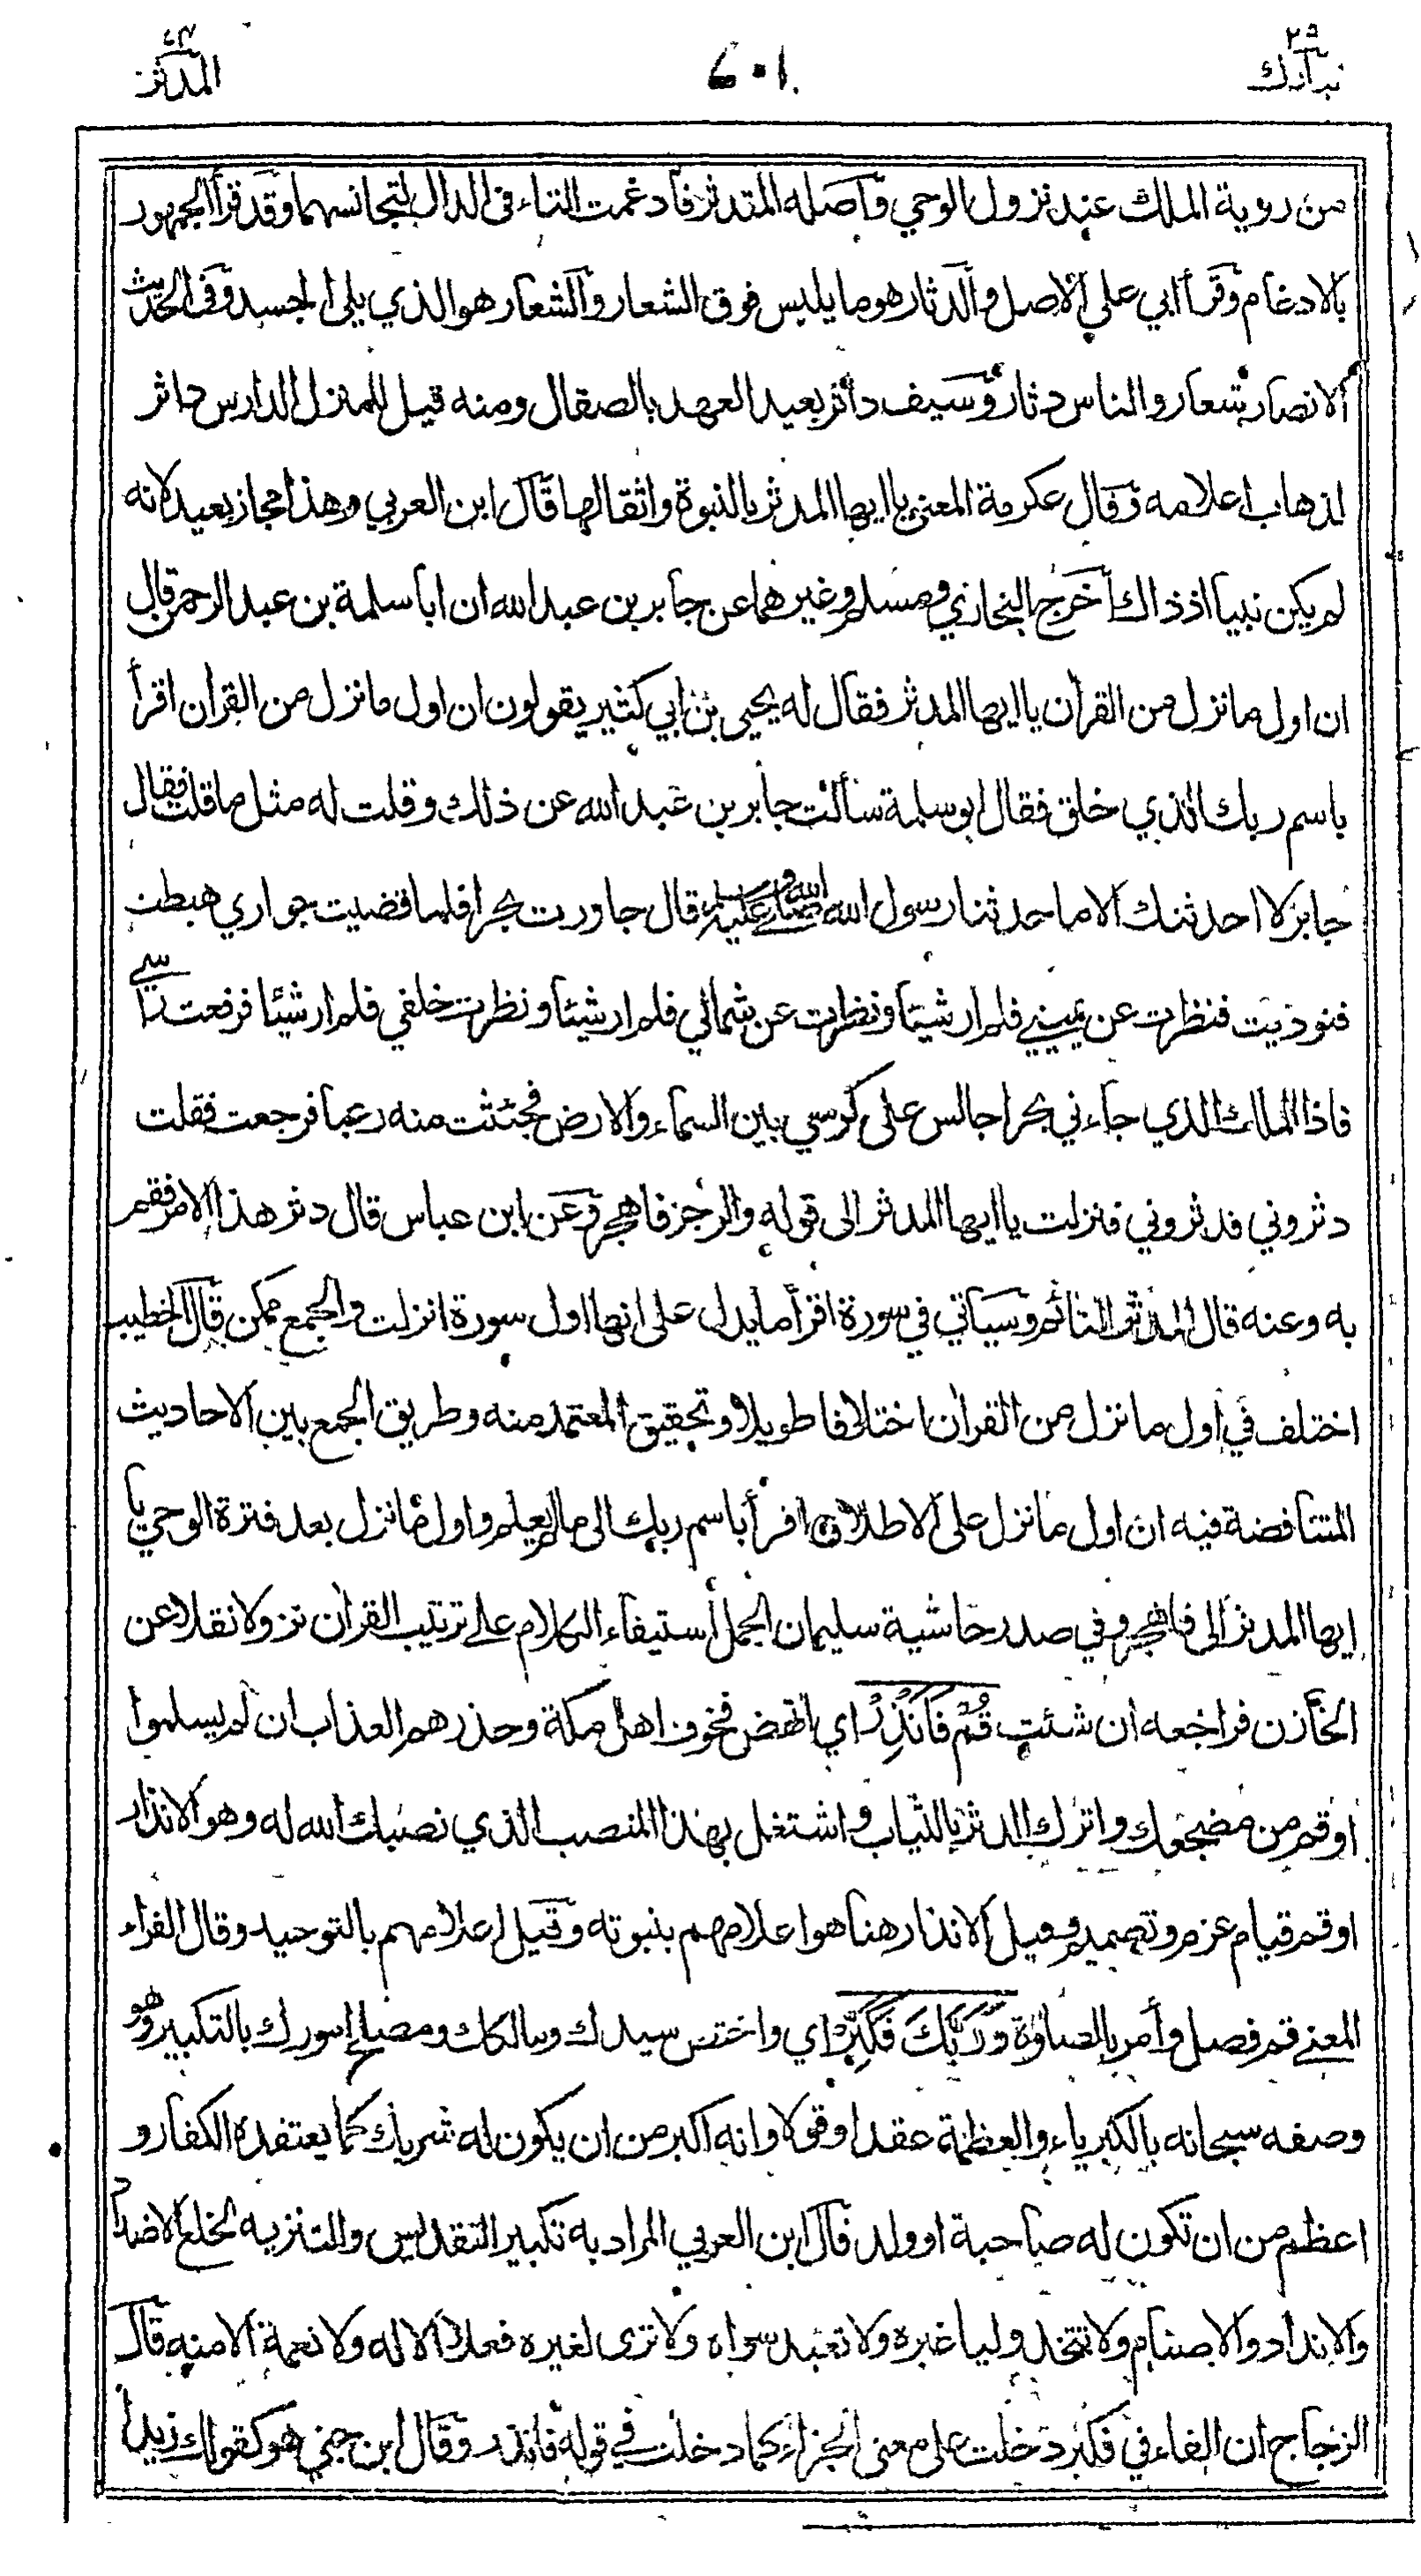 ٢٩
تبارك
٤٠١
٧٤
المدثر
من روية الملك عند نزول الوحي وأصله المتدثر فأدغمت التاء فى الدال لتجانسهما وقد قرأ الجمهور
بالادغام وقرأ أبي على الاصل والدثار هو ما يلبس فوق الشعار والشعار هو الذي يلى الجسد وفى الحديث
الانصار شعار والناس دثار وسيف داثر بعيد العهد بالصقال ومنه قيل للمنزل الدارس داثر
لذهاب اعلامه وقال عكرمة المعنى يا ايها المدثر بالنبوة واثقالها قال ابن العربي وهذا مجاز بعيد لانه
لم يكن نبيا اذ ذاك أخرج البخاري ومسلم وغيرهما عن جابر بن عبد الله ان ابا سلمة بن عبد الرحمن قال
ان اول ما نزل من القرآن يا ايها المدثر فقال له يحيى بن ابي كثير يقولون ان اول ما نزل من القرآن اقرأ
باسم ربك الذي خلق فقال ابو سلمة سألت جابر بن عبد الله عن ذلك وقلت له مثل ما قلت فقال
جابر لا احدثنك الا ما حدثنا رسول الله صلى الله عليه وسلم قال جاورت بحرا فلما قضيت جواري هبطت
فنوديت فنظرت عن يميني فلم ار شيئا ونظرت عن شمالي فلم ار شيئا ونظرت خلفي فلم ار شيئا فرفعت رأسي
فاذا الملك الذي جاءني بحرا جالس على كرسي بين السماء والارض فجئثت منه رعبا فرجعت فقلت
دثروني فدثروني فنزلت يا ايها المدثر الى قوله والرجز فاهجر وعن ابن عباس قال دثر هذا الامر فقم
به وعنه قال المدثر النائم وسيأتي في سورة اقرأ ما يدل على انها اول سورة انزلت والجمع ممكن قال الخطيب
اختلف في اول ما نزل من القرآن اختلافا طويلا وتحقيق المعتمد منه وطريق الجمع بين الاحاديث
المتناقضة فيه ان اول ما نزل على الاطلاق اقرأ باسم ربك الى ما لم يعلم واول ما نزل بعد فترة الوحي يا
ايها المدثر الى فاهجر وفي صدر حاشية سليمان الجمل استيفاء الكلام على ترتيب القرآن نزولا نقلا عن
الخازن فراجعه ان شئت قُمْ فَأَنْذِرْ اي انهض فخوف اهل مكة وحذرهم العذاب ان لم يسلموا
او قم من مضجعك واترك الدثر بالثياب واشتغل بهذا المنصب الذي نصبك الله له وهو الانذار
او قم قيام عزم وتصميم وقيل الانذار هنا هو اعلامهم بنبوته وقيل اعلامهم بالتوحيد وقال الفراء
المعنى قم فصل وأمر بالصلوة وَرَبَّكَ فَكَبِّرْ اي واختص سيدك ومالكك ومصلح امورك بالتكبير وهو
وصفه سبحانه بالكبرياء والعظمة عقدا وقولا وانه اكبر من ان يكون له شريك كما يعتقده الكفار و
اعظم من ان تكون له صاحبة او ولد قال ابن العربي المراد به تكبير التقديس والتنزيه لخلع الاضداد
والانداد والاصنام ولا تتخذ وليا غيره ولا تعبد سواه ولا ترى لغيره فعلا الا له ولا نعمة الا منه قال
الزجاج ان الفاء في فكبر دخلت على معنى الجزاء كما دخلت في قوله فانذر وقال ابن جني هو كقولك زيدا